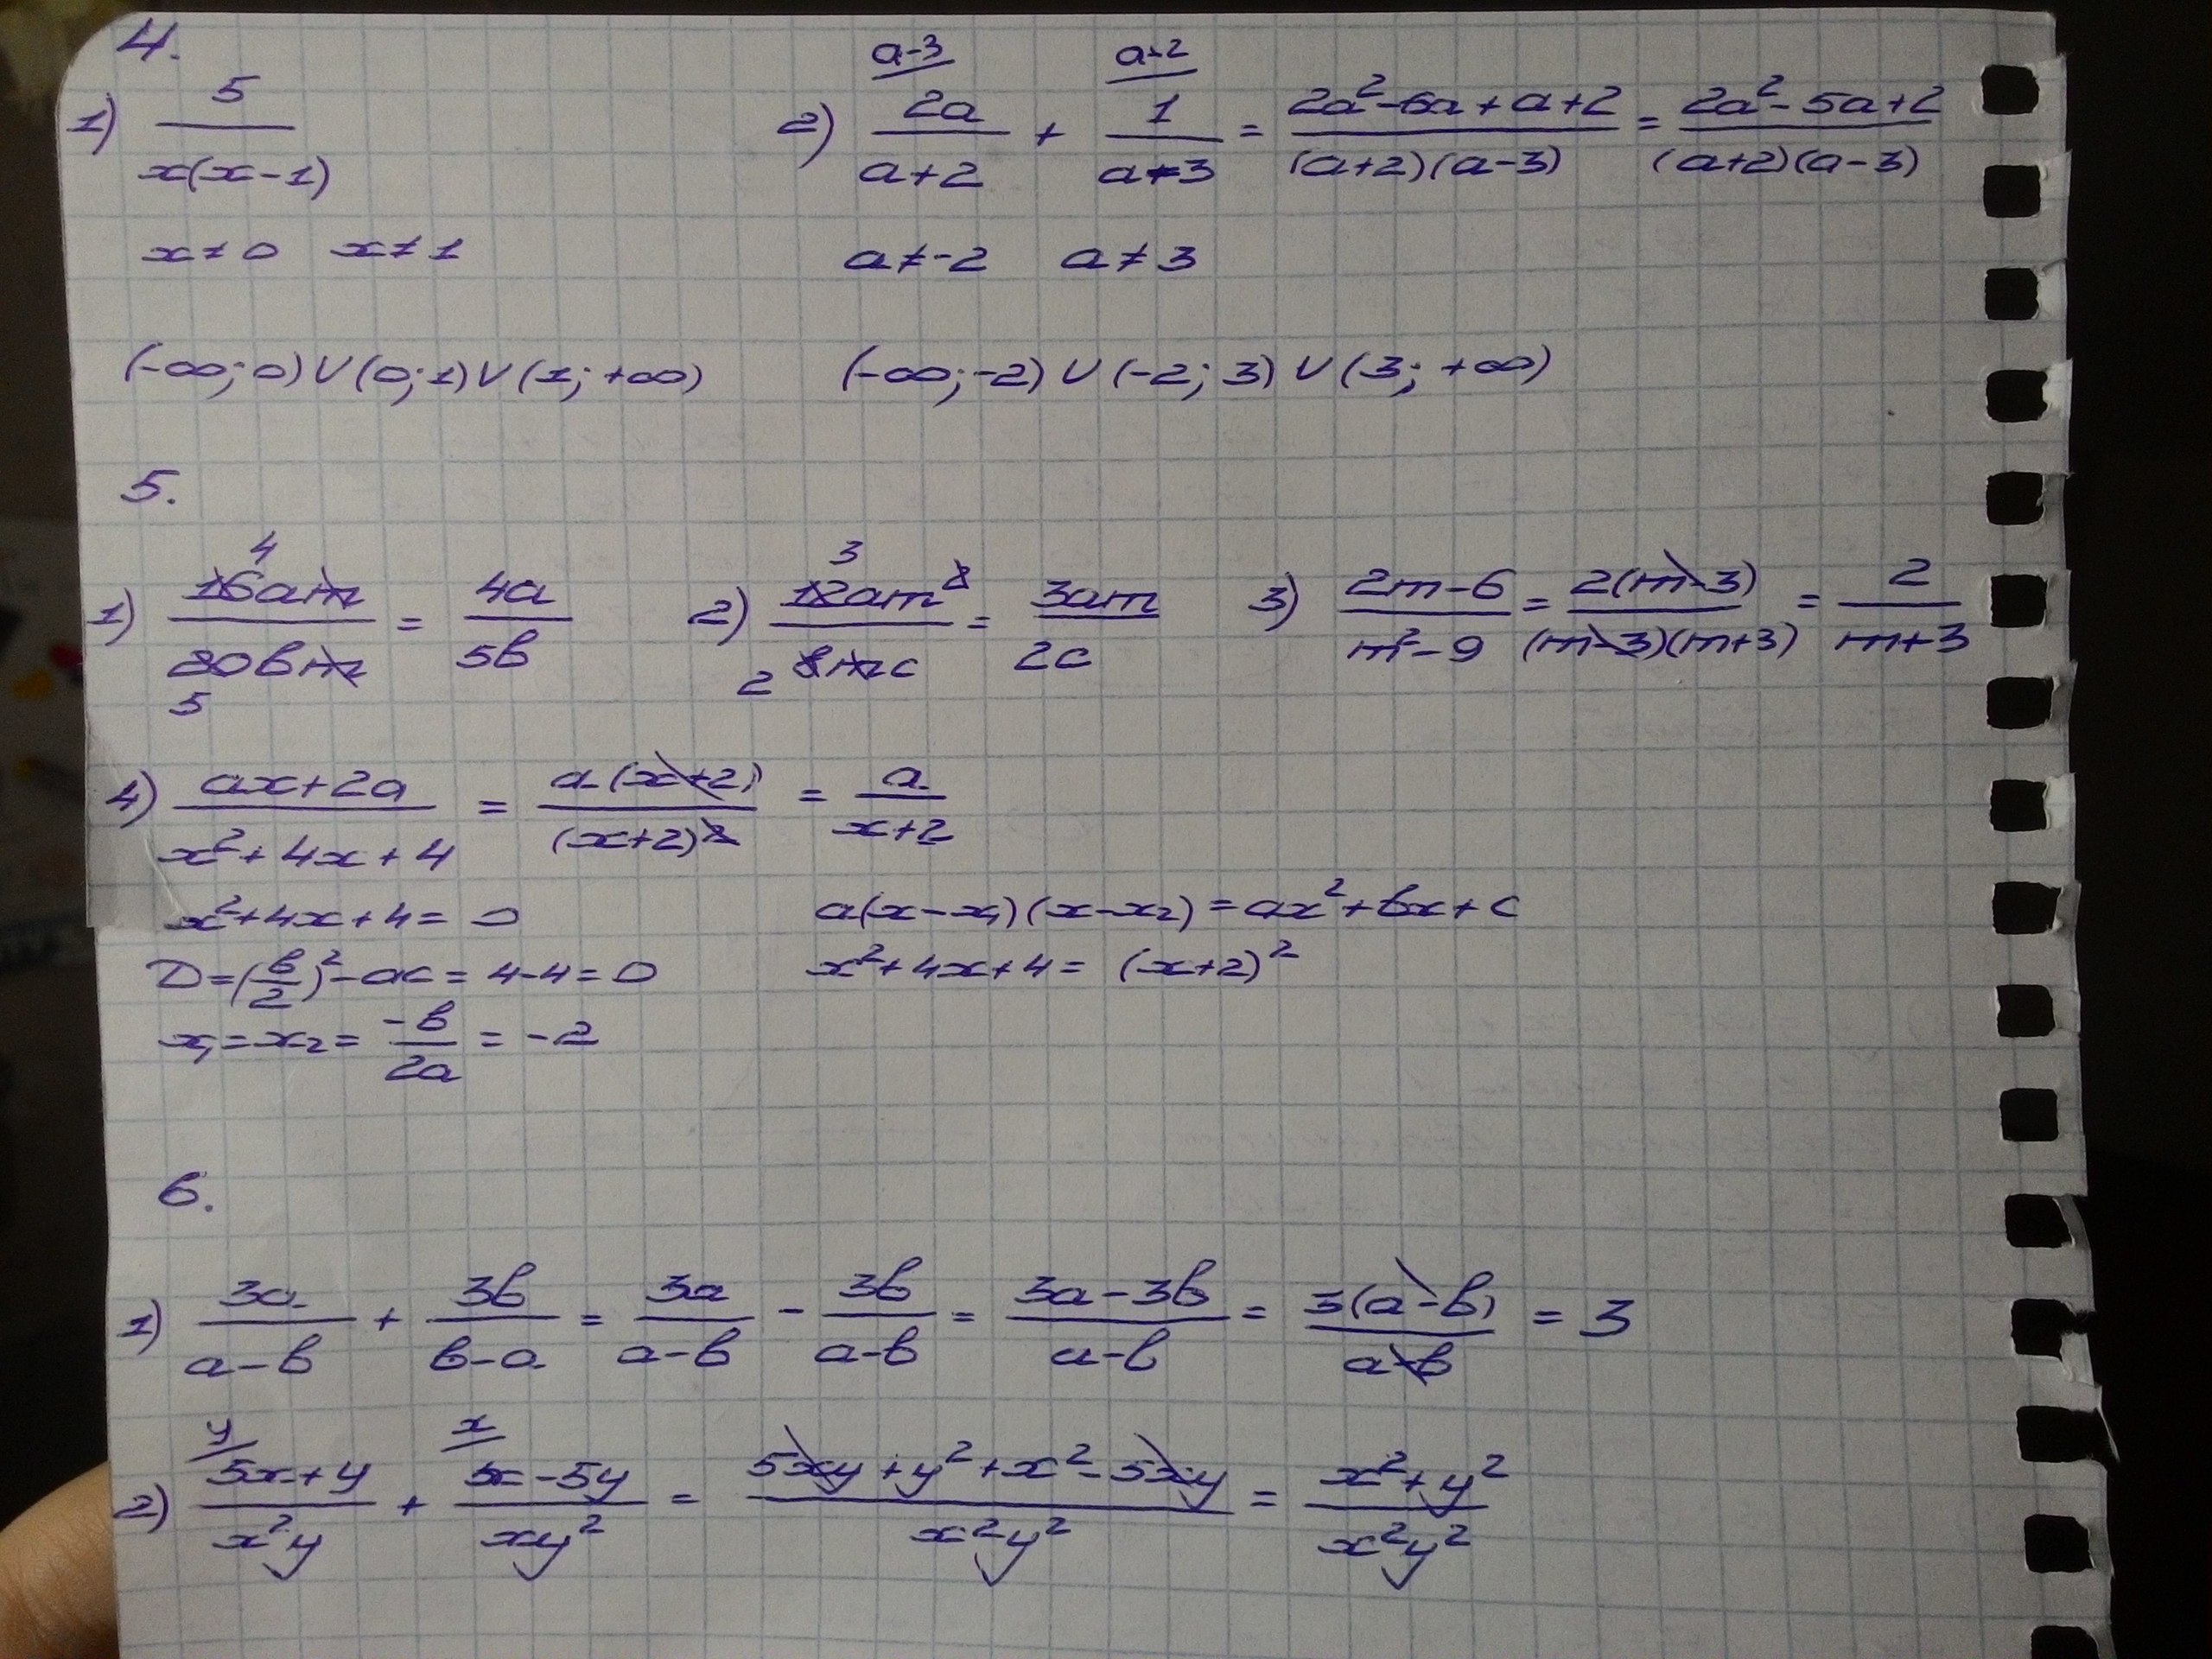 4.
1) 5/(x(x-1))
x≠0 x≠1
(-∞;0)∪(0;1)∪(1;+∞)
2) a-3 a+2
2a/(a+2) + 1/(a-3) = (2a²-6a+a+2)/((a+2)(a-3)) = (2a²-5a+2)/((a+2)(a-3))
a≠-2 a≠3
(-∞;-2)∪(-2;3)∪(3;+∞)
5.
1) 4 16am/20bm 5 = 4a/5b
2) 3 12am²/8mc 2 = 3am/2c
3) (2m-6)/(m²-9) = 2(m-3)/((m-3)(m+3)) = 2/(m+3)
4) (ax+2a)/(x²+4x+4) = a(x+2)/(x+2)² = a/(x+2)
x²+4x+4=0
D=(b/2)²-ac=4-4=0
x₁=x₂=-b/2a=-2
a(x-x₁)(x-x₂)=ax²+bx+c
x²+4x+4=(x+2)²
6.
1) 3a/(a-b) + 3b/(b-a) = 3a/(a-b) - 3b/(a-b) = (3a-3b)/(a-b) = 3(a-b)/(a-b) = 3
y x
2) (5x+y)/(x²y) + (x-5y)/(xy²) = (5xy+y²+x²-5xy)/(x²y²) = (x²+y²)/(x²y²)